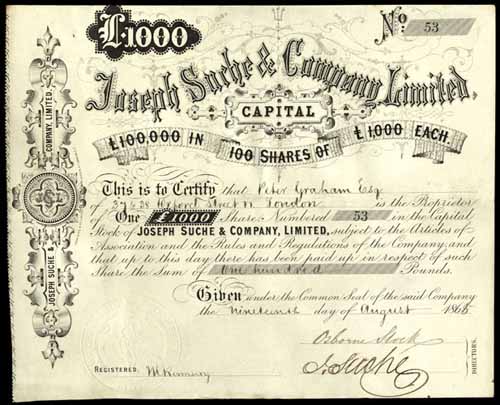 £1000
No. 53
Joseph Suche & Company Limited.
CAPITAL
£100,000 IN 100 SHARES OF £1000 EACH.
This is to Certify that Peter Graham Esq.
of 37 & 38 Oxford Street W. London is the Proprietor
of One £1000 Share Numbered 53 in the Capital
Stock of JOSEPH SUCHE & COMPANY, LIMITED, subject to the Articles of
Association and the Rules and Regulations of the Company, and
that up to this day there has been paid up in respect of such
Share the Sum of One hundred Pounds.
Given under the Common Seal of the said Company
the nineteenth day of August 1865
Osborne Stock
J. Suche
DIRECTORS.
REGISTERED.
JOSEPH SUCHE & COMPANY, LIMITED.